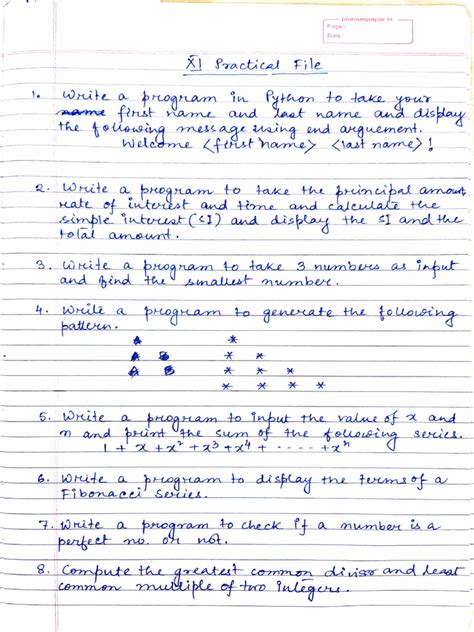 pioneerpaper.in
Page:
Date:
XI Practical File
1. Write a program in Python to take your
first name and last name and display
the following message using end arguement.
Welcome <first name> <last name>!
2. Write a program to take the principal amount,
rate of interest and time and calculate the
simple interest (SI) and display the SI and the
total amount.
3. Write a program to take 3 numbers as input
and find the smallest number.
4. Write a program to generate the following
pattern.
*
* *
* * *
* * * *
5. Write a program to input the value of x and
n and print the sum of the following series.
1 + x + x² + x³ + x⁴ + ----- + xⁿ
6. Write a program to display the terms of a
Fibonacci Series.
7. Write a program to check if a number is a
perfect no. or not.
8. Compute the greatest common divisor and least
common multiple of two integers.